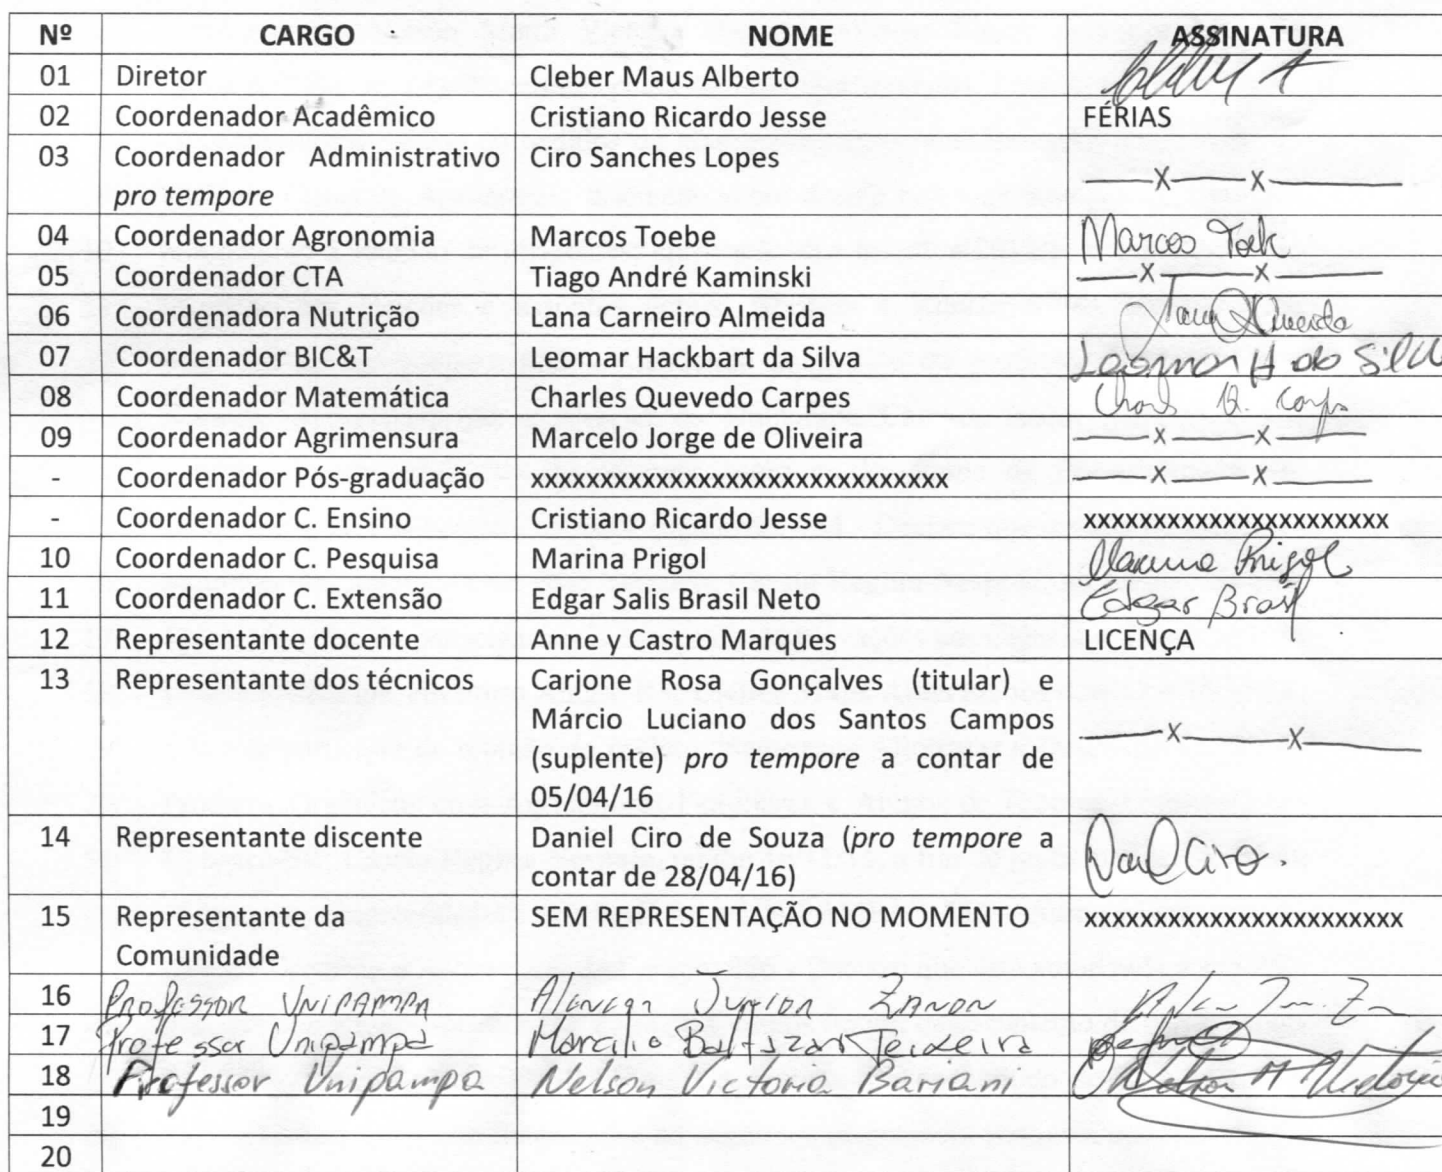 Nº CARGO NOME ASSINATURA
01 Diretor Cleber Maus Alberto
02 Coordenador Acadêmico Cristiano Ricardo Jesse FÉRIAS
03 Coordenador Administrativo Ciro Sanches Lopes
pro tempore —x—x—
04 Coordenador Agronomia Marcos Toebe Marcos Toebe
05 Coordenador CTA Tiago André Kaminski —x—x—
06 Coordenadora Nutrição Lana Carneiro Almeida Lana Almeida
07 Coordenador BIC&T Leomar Hackbart da Silva Leomar H da Silva
08 Coordenador Matemática Charles Quevedo Carpes Charles Q. Carpes
09 Coordenador Agrimensura Marcelo Jorge de Oliveira —x—x—
- Coordenador Pós-graduação xxxxxxxxxxxxxxxxxxxxxxxxxxxxxx —x—x—
- Coordenador C. Ensino Cristiano Ricardo Jesse xxxxxxxxxxxxxxxxxxxxxx
10 Coordenador C. Pesquisa Marina Prigol Marina Prigol
11 Coordenador C. Extensão Edgar Salis Brasil Neto Edgar Brasil
12 Representante docente Anne y Castro Marques LICENÇA
13 Representante dos técnicos Carjone Rosa Gonçalves (titular) e
Márcio Luciano dos Santos Campos —x—x—
(suplente) pro tempore a contar de
05/04/16
14 Representante discente Daniel Ciro de Souza (pro tempore a
contar de 28/04/16) Daniel Ciro.
15 Representante da SEM REPRESENTAÇÃO NO MOMENTO xxxxxxxxxxxxxxxxxxxxxxx
Comunidade
16 Professor UNIPAMPA Alencar Junior Zanon
17 Professor Unipampa Marcilio Baltazar Teixeira
18 Professor Unipampa Nelson Victoria Bariani
19
20